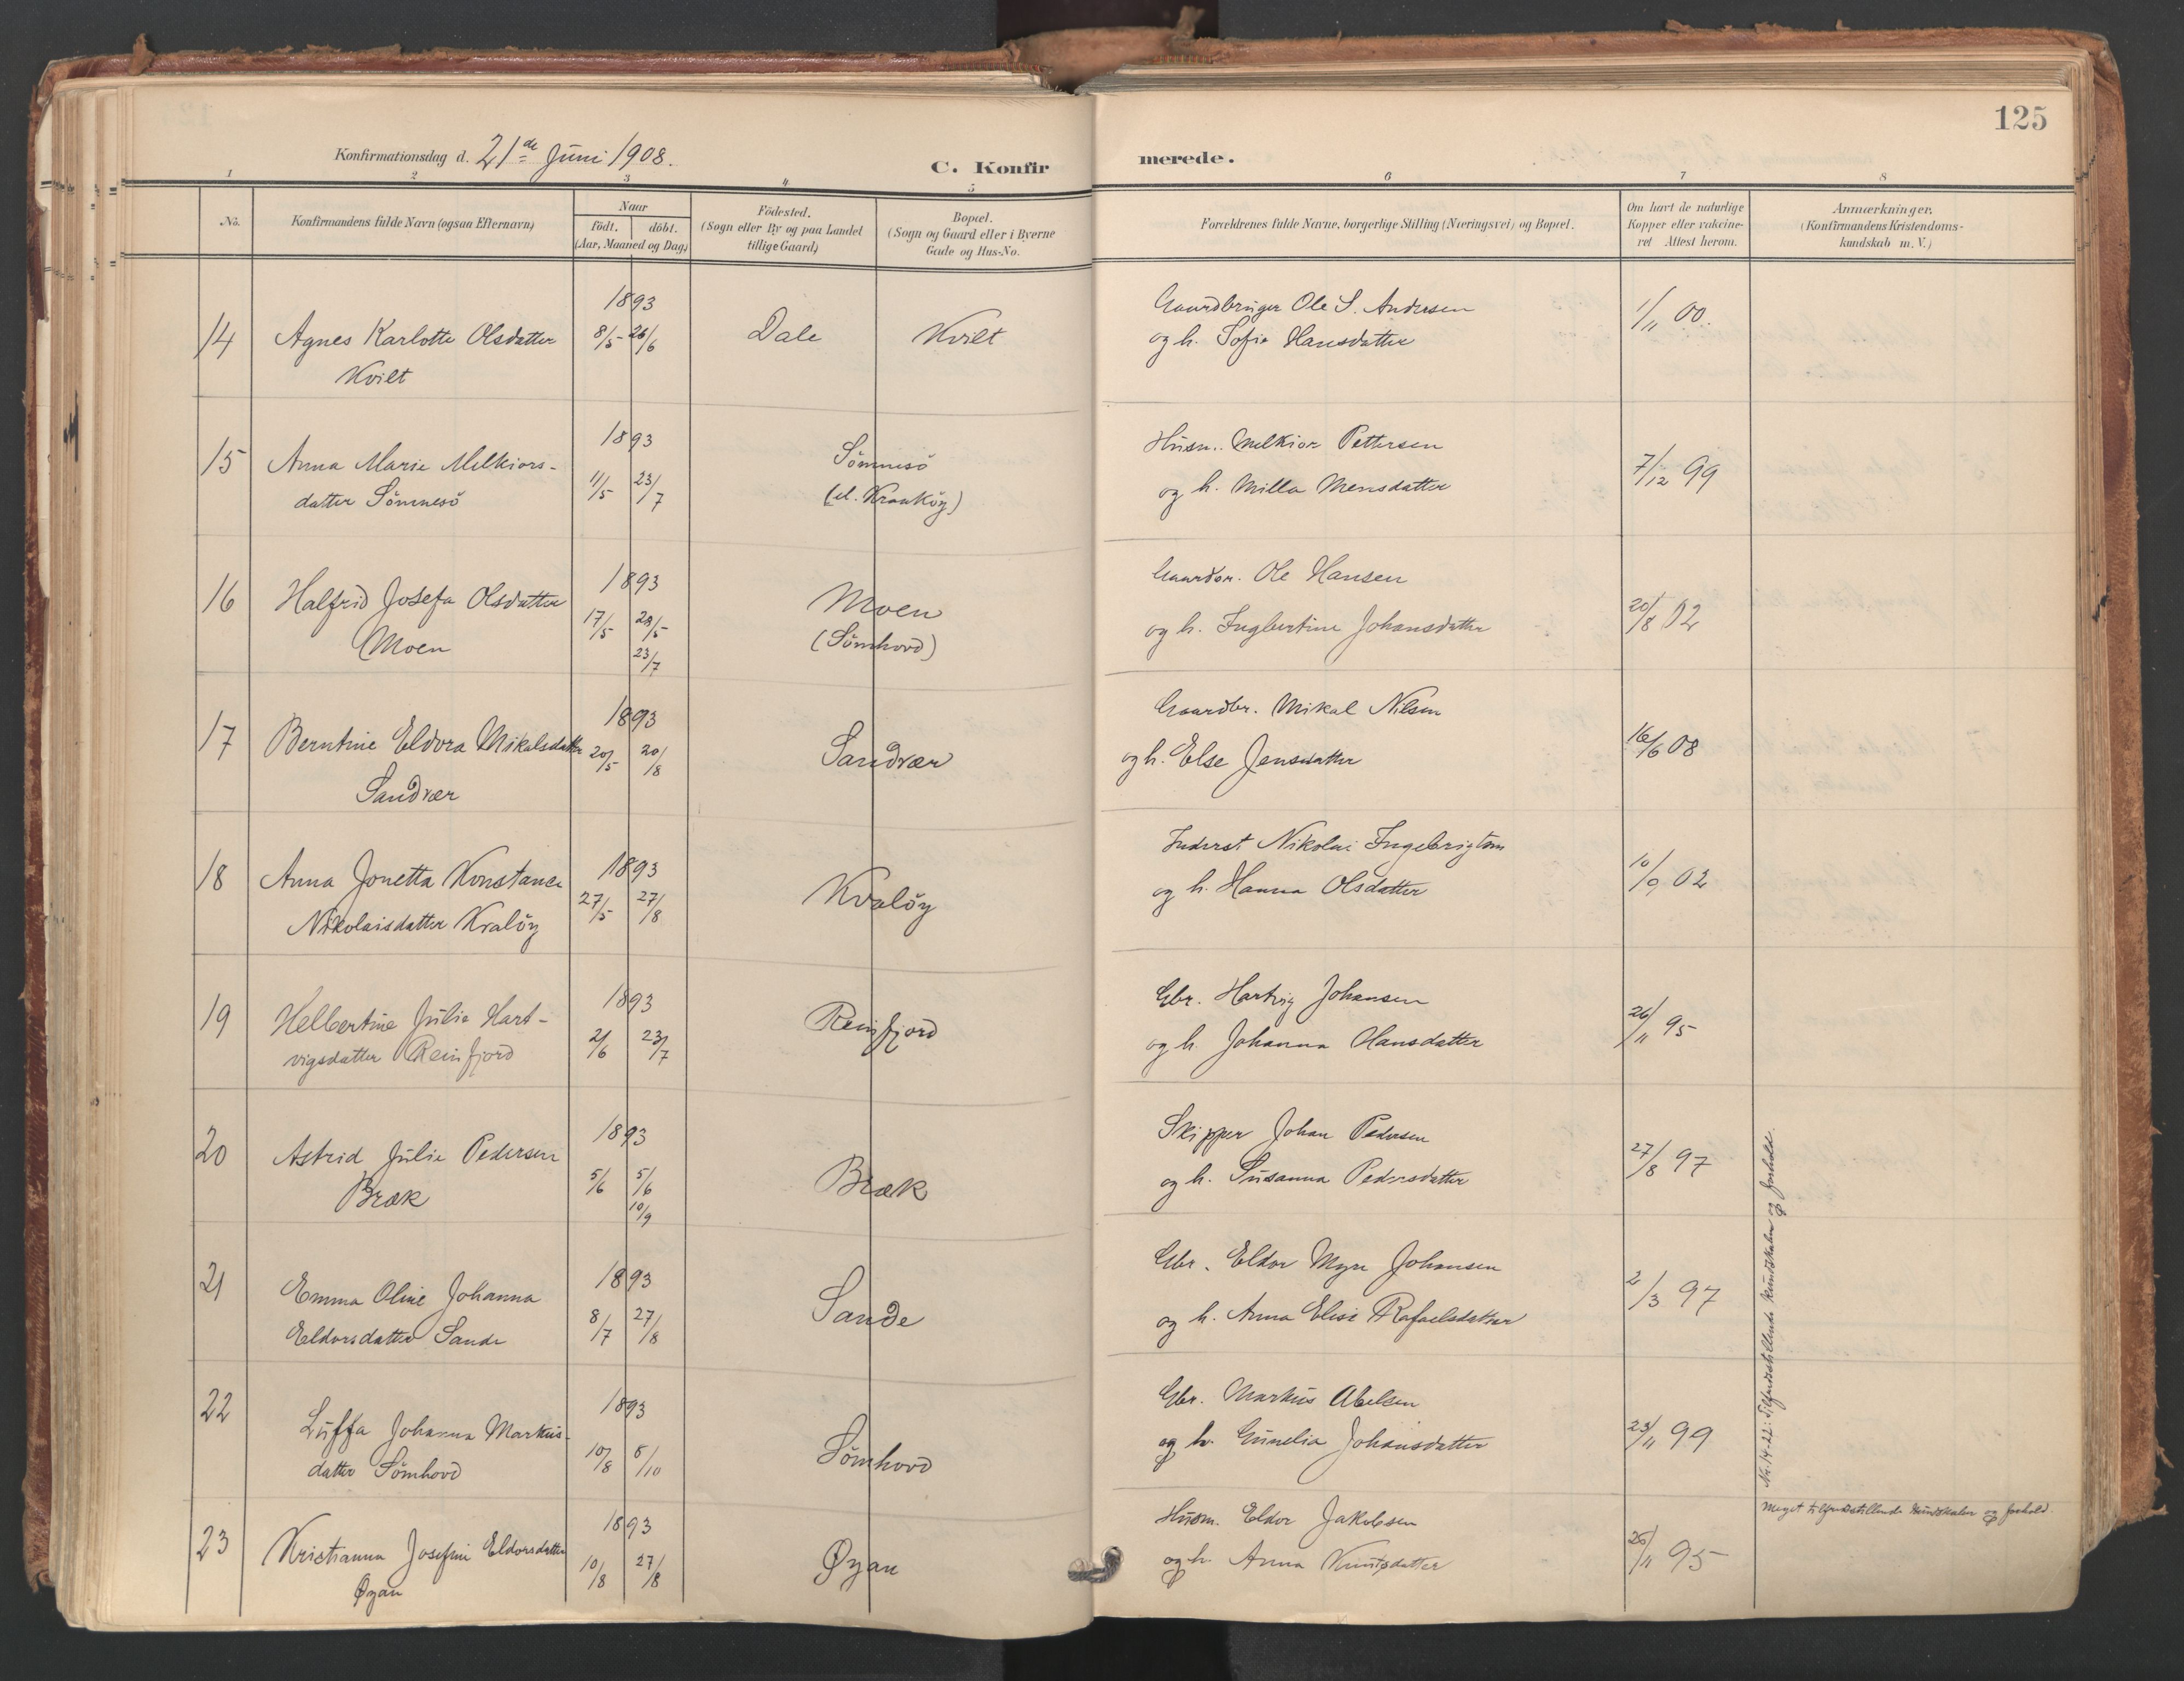 125
Konfirmationsdag d. 21de Juni 1908.
C. Konfir
merede.
1 2 3 4 5 6 7 8
No.
Konfirmandens fulde Navn (ogsaa Efternavn)
Naar
födt. döbt.
(Aar, Maaned og Dag)
Födested.
(Sogn eller By og paa Landet
tillige Gaard)
Bopæl.
(Sogn og Gaard eller i Byerne
Gade og Hus-No.
Forældrenes fulde Navne, borgerlige Stilling (Næringsvei) og Bopæl.
Om havt de naturlige
Kopper eller vakcine-
ret Attest herom.
Anmærkninger.
(Konfirmandens Kristendoms-
kundskab m. V.)
14 Agnes Karlotte Olsdatter
Kvilt
1893
8/5 26/6
Dale Kvilt
Gaardbruger Ole S. Andersen
og h. Sofie Hansdatter
1/11 00.
15 Anna Marie Melkiors-
datter Sömnesö
1893
11/5 23/7
Sömnesö
(el. Kraaköy)
Husm. Melkior Pettersen
og h. Milla Mensdatter
7/12 99
16 Halfrid Josefa Olsdatter
Moen
1893
17/5 28/5
23/7
Moen
(Sömhovd)
Gaardbr. Ole Hansen
og h. Ingbertine Johansdatter
20/8 02
17 Berntine Eldora Mikalsdatter
Sandvær
1893
20/5 20/8
Sandvær
Gaardbr. Mikal Nilsen
og h. Else Jensdatter
16/6 08
18 Anna Jonetta Konstance
Nikolaisdatter Kvalöy
1893
27/5 27/8
Kvalöy
Inderst Nikolai Ingebrigtsen
og h. Hanna Olsdatter
10/9 02
19 Helbertine Julie Hart-
vigsdatter Reinfjord
1893
2/6 23/7
Reinfjord
Gbr. Hartvig Johansen
og h. Johanna Hansdatter
26/11 95
20 Astrid Julie Pedersen
Bræk
1893
5/6 5/6
10/9
Bræk
Skipper Johan Pedersen
og h. Susanna Pedersdatter
27/8 97
21 Emma Oline Johanna
Eldorsdatter Sande
1893
8/7 27/8
Sande
Gbr. Eldor Myre Johansen
og h. Anna Elise Rafaelsdatter
2/3 97
22 Luffa Johanna Markus-
datter Sömhovd
1893
10/8 8/10
Sömhovd
Gbr. Markus Abelsen
og h. Gunelia Johansdatter
23/11 99
Nr. 14-22: Tilfredsstillende kundskaber og forhold.
23 Kristianna Josefine Eldorsdatter
Øyan
1893
10/8 27/8
Øyan
Husm. Eldor Jakobsen
og h. Anna Knutsdatter
26/11 95
Meget tilfredsstillende kundskaber og forhold.